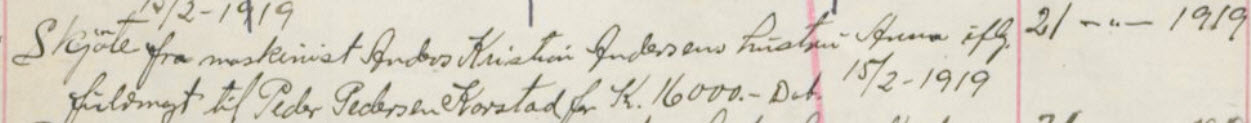 15/2-1919
Skjöte fra maskinist Anders Kristian Andersens hustru Anna iflg. 21 -"- 1919
fuldmagt til Peder Pedersen Korstad for K. 16000.- Dat. 15/2-1919